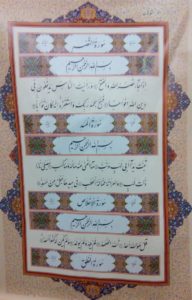 سورة النصر
بسم الله الرحمن الرحيم
إذا جاء نصر الله والفتح ورأيت الناس يدخلون في
دين الله أفواجا فسبح بحمد ربك واستغفره إنه كان توابا
سورة
بسم الله الرحمن الرحيم
تبت يدا أبي لهب وتب ما أغنى عنه ماله وما كسب سيصلى نارا
ذات لهب وامرأته حمالة الحطب في جيدها حبل من مسد
سورة الإخلاص
بسم الله الرحمن الرحيم
قل هو الله أحد الله الصمد لم يلد ولم يولد ولم يكن له كفوا أحد
سورة الفلق